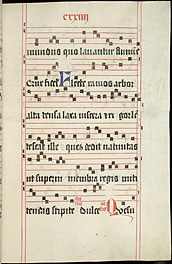 cxxiiii
mundus quo lavantur flumine
Crux fidel Flecte ramos arbor
alta tensa laxa viscera et
rescat ille quem dedit nativitas
ut superni membra regis miti
tendas stipite Dulce